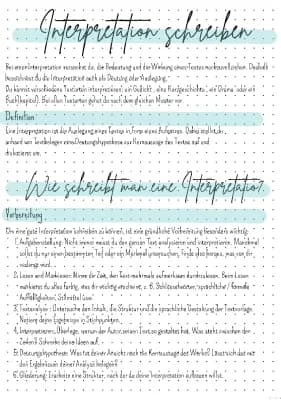 Interpretation schreiben
Bei einer Interpretation versuchst du, die Bedeutung und die Wirkung eines Textes nachzuvollziehen. Deshalb
bezeichnest du die Interpretation auch als Deutung oder Auslegung.
Du kannst verschiedene Textarten interpretieren: ein Gedicht, eine Kurzgeschichte, ein Drama oder ein
Buch(kapitel). Bei allen Textarten gehst du nach dem gleichen Muster vor.
Definition
Eine Interpretation ist die Auslegung eines Textes in Form eines Aufsatzes. Dabei stellst du
anhand von Textbelegen eine Deutungshypothese zur Kernaussage des Textes auf und
diskutierst sie.
Wie schreibt man eine Interpretatio?
Vorbereitung
Um eine gute Interpretation schreiben zu können, ist eine gründliche Vorbereitung besonders wichtig:
1. Aufgabenstellung: Nicht immer musst du den ganzen Text analysieren und interpretieren. Manchmal
sollst du nur einen bestimmten Teil oder ein Merkmal untersuchen. Finde also heraus, was von dir
verlangt wird.
2. Lesen und Markieren: Nimm dir Zeit, den Text mehrmals aufmerksam durchzulesen. Beim Lesen
markierst du alles farbig, was dir wichtig erscheint, z. B. Schlüsselwörter, sprachliche / formale
Auffälligkeiten, Stilmittel usw.
3. Textanalyse: Untersuche den Inhalt, die Struktur und die sprachliche Gestaltung der Textvorlage.
Notiere deine Ergebnisse in Stichpunkten.
4. Interpretieren: Überlege, warum der Autor seinen Text so gestaltet hat. Was steht zwischen den
Zeilen? Schreibe deine Ideen auf.
5. Deutungshypothese: Was ist deiner Ansicht nach die Kernaussage des Werkes? Lässt sich das mit
den Ergebnissen deiner Analyse belegen?
6. Gliederung: Erstelle eine Struktur, nach der du deine Interpretation aufbauen willst.